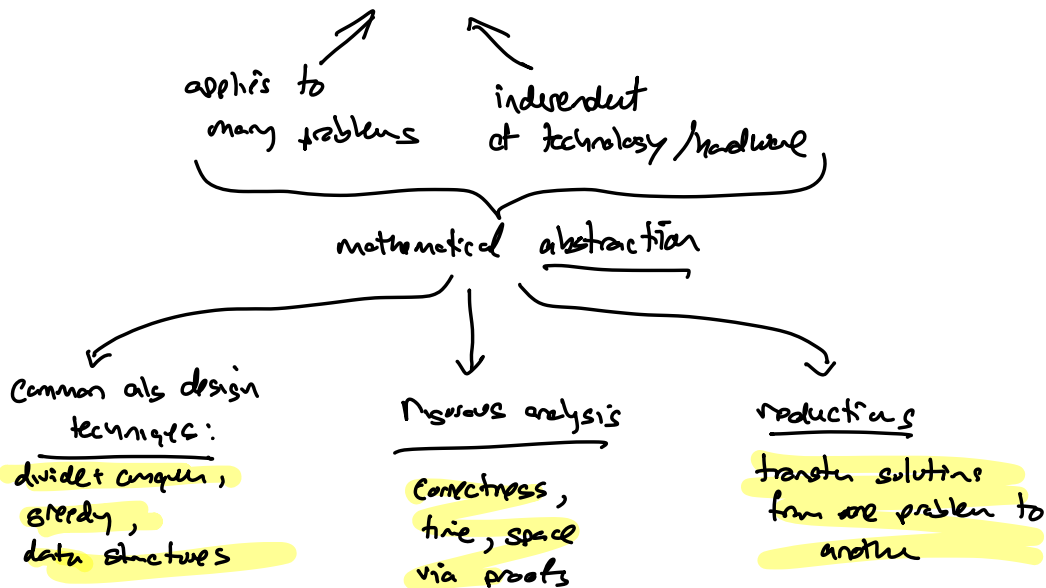 applies to
many problems
independent
of technology/hardware
mathematical abstraction
Common alg design
techniques:
divide+conquer,
greedy,
data structures
Rigorous analysis
correctness,
time, space
via proofs
reductions
transfer solutions
from one problem to
another